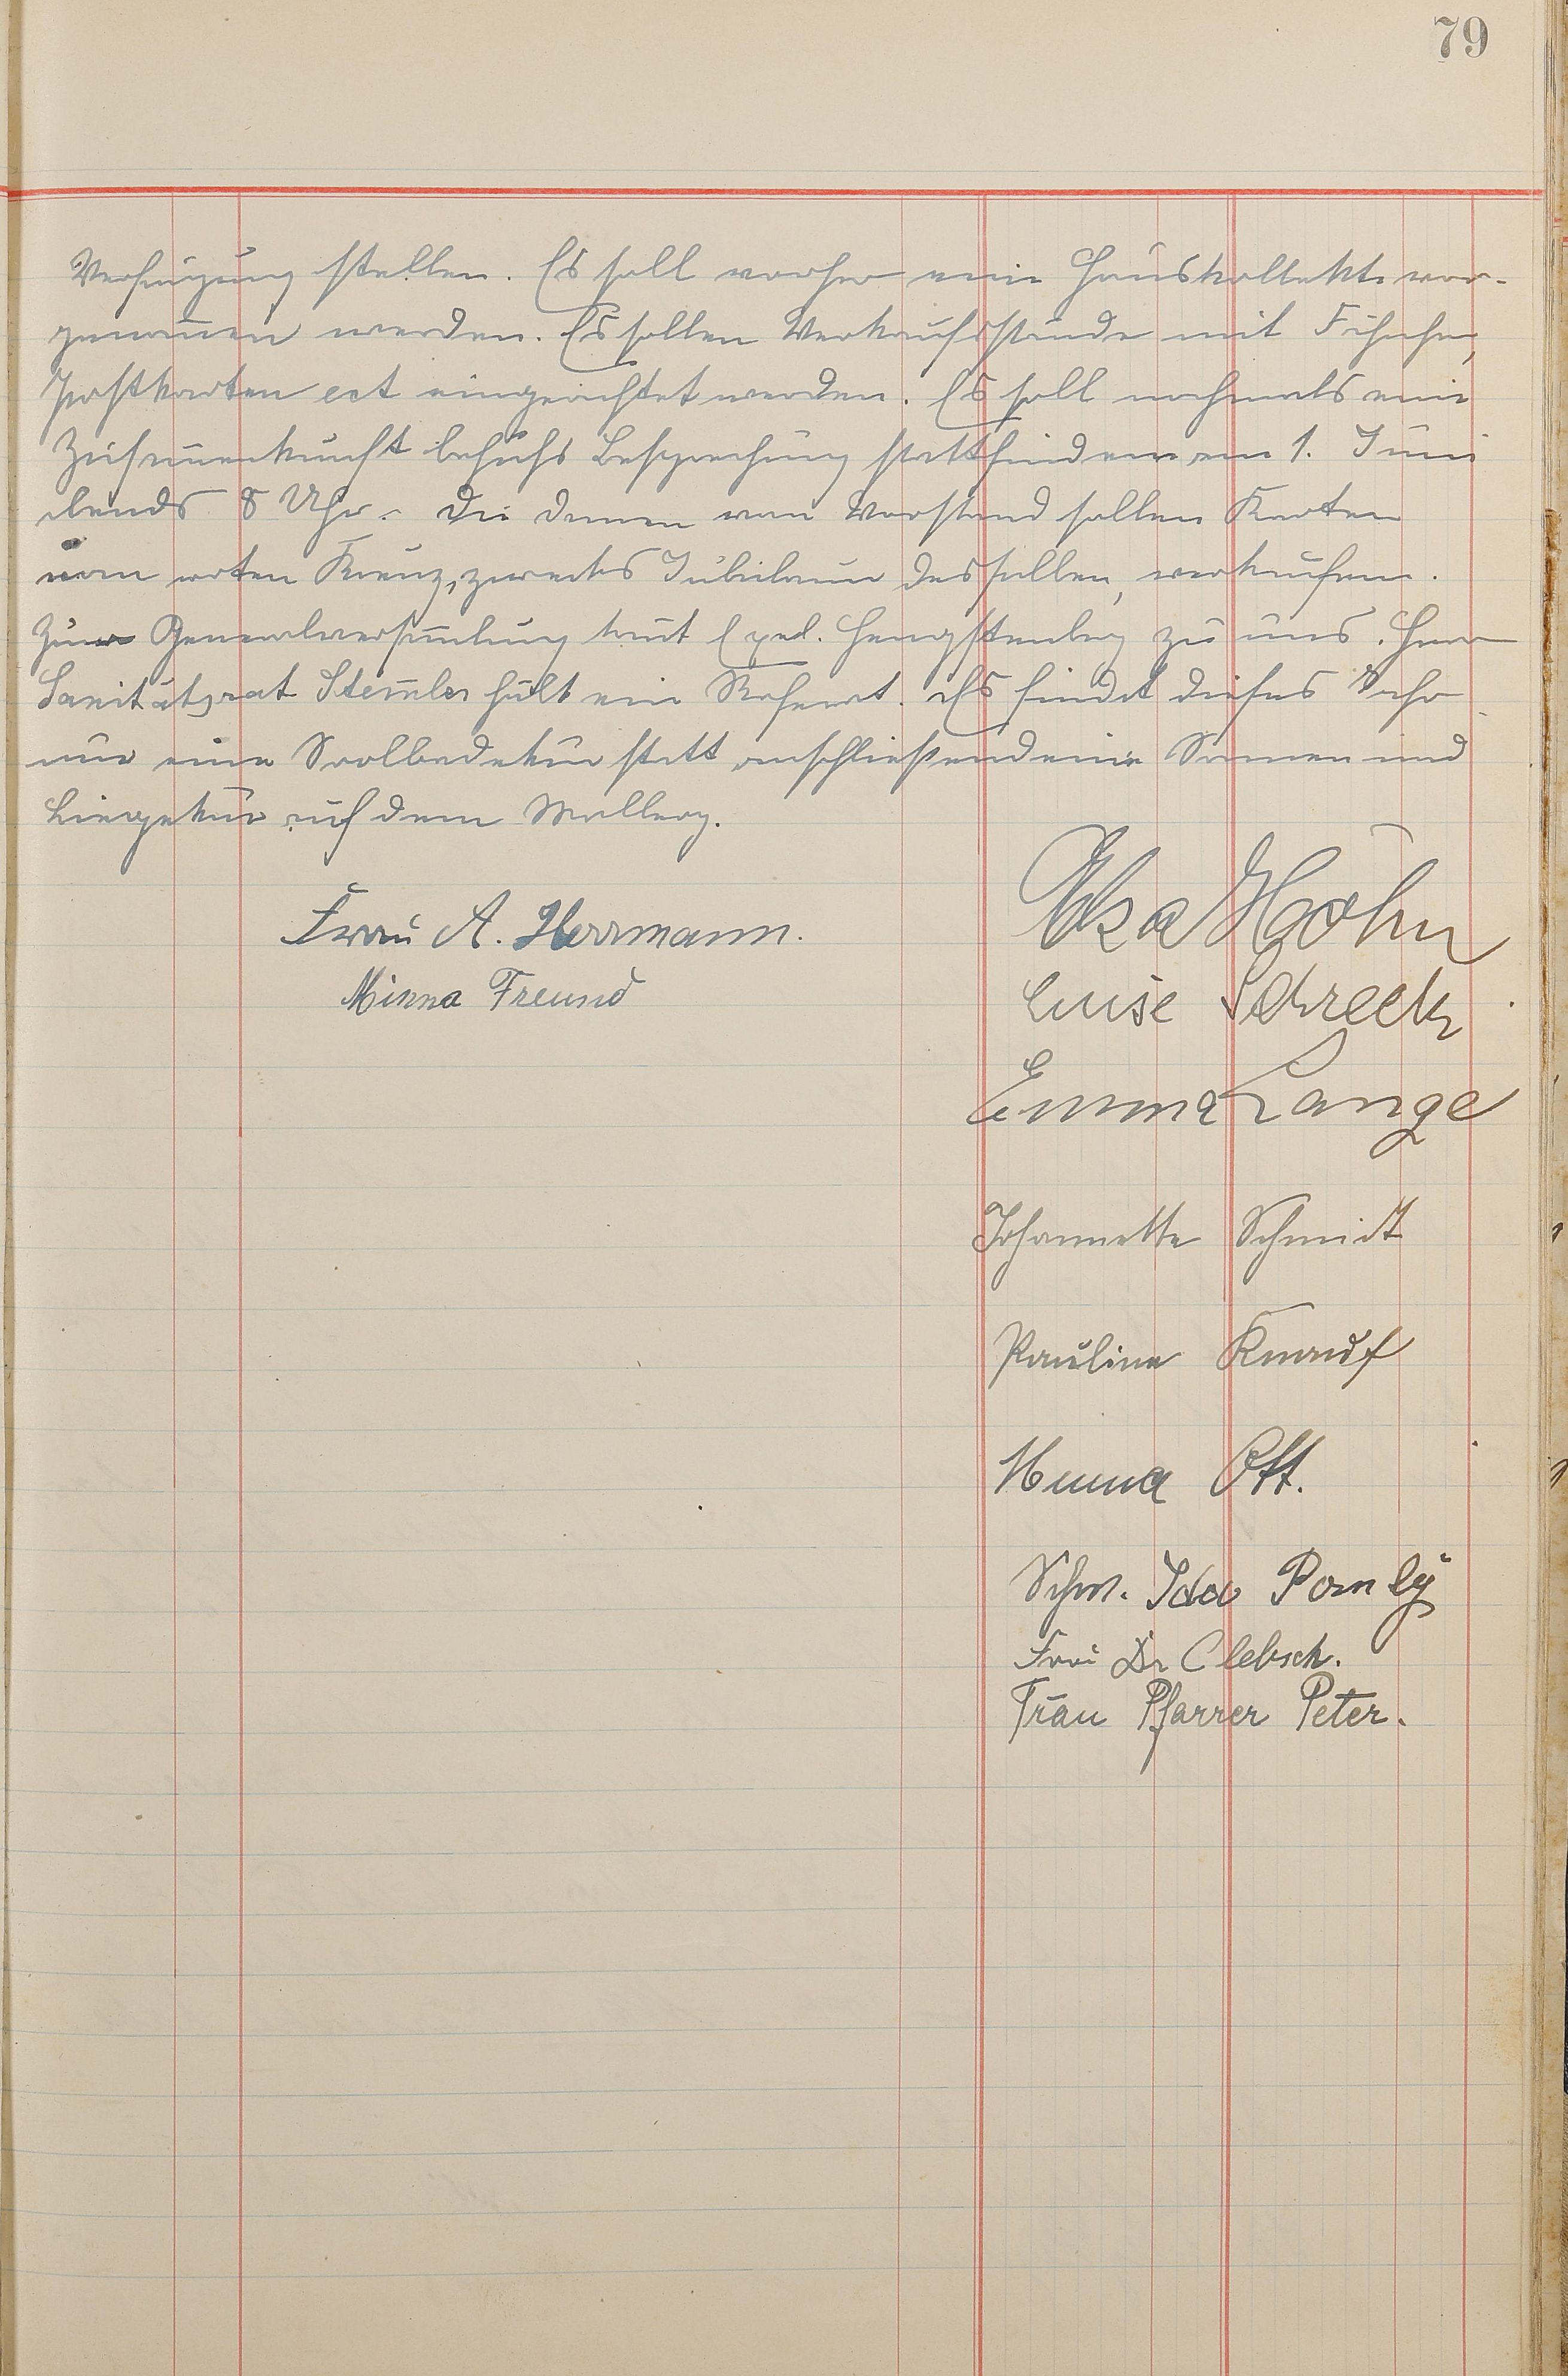 79
Verfügung stellen. Es soll vorher eine Hauskollekte vor-
genom̄en werden. Es sollen Verkaufsstände mit Fähnchen,
Postkarten ect eingerichtet werden. Es soll nochmals eine
Zusam̄enkunft behufs Besprechung stattfinden am 1. Juni
abends 8 Uhr. Die Damen vom Vorstand sollen Karten
vom roten Kreuz, zwecks Jubiläum desselben, verkaufen.
Zur Generalversam̄lung kom̄t Hengstenberg zu uns. Herr
Sanitätsrat Stem̄ler hält ein Referat. Es findet dieses Jahr
nur eine Soolbadekur statt anschließend eine Sonnen und
Liegekur auf dem Mallberg.
Frau A. Herrmann.
Minna Freund
Elsa Höhn
Luise Schreck
Emma Lange
Johannette Schmidt
Pauline Knauf
Minna Ott.
Schw. Ida
Frau Dr Clebsch.
Frau Pfarrer Peter.